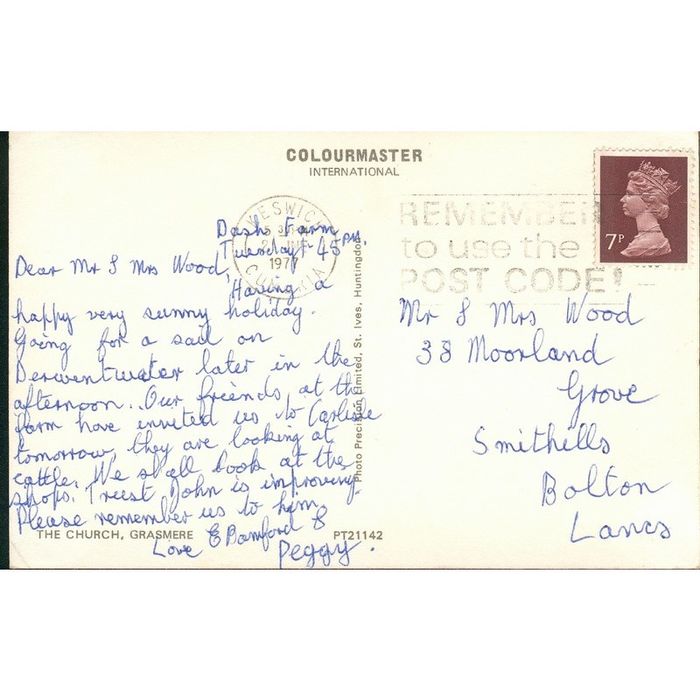 COLOURMASTER
INTERNATIONAL
KESWICK
1977
CUMBRIA
REMEMBER
to use the
POST CODE!
7P
Dash Farm
Tuesday 1-45 PM.
Dear Mr & Mrs Wood,
Having a
happy very sunny holiday.
Going for a sail on
Derwentwater later in the
afternoon. Our friends at the
farm have invited us to Carlisle
tomorrow, they are looking at
cattle. We shall look at the
shops. Trust John is improving.
Please remember us to him.
Love E Bamford &
Peggy.
THE CHURCH, GRASMERE
PT21142
Photo Precision Limited, St. Ives, Huntingdon
Mr & Mrs Wood
38 Moorland
Grove
Smithells
Bolton
Lancs